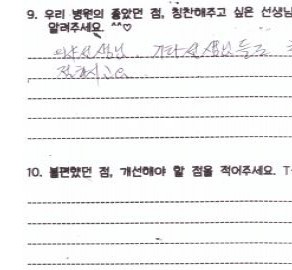 9. 우리 병원의 좋았던 점, 칭찬해주고 싶은 선생님
알려주세요. ^^♡
선생님, 기타 선생님들도
10. 불편했던 점, 개선해야 할 점을 적어주세요. T